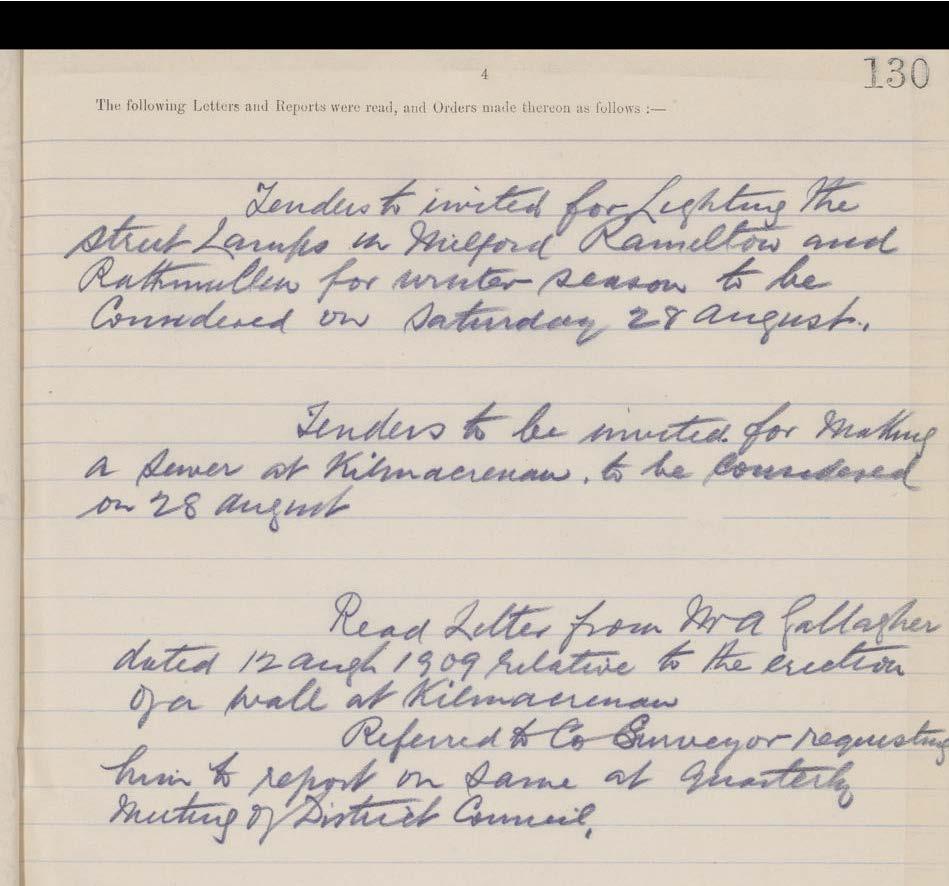 4
130
The following Letters and Reports were read, and Orders made thereon as follows :—
Tenders to invited for Lighting the
Street Lamps in Milford Ramelton and
Rathmullen for winter season to be
Considered on Saturday 28 August.
Tenders to be invited for Making
a Sewer at Kilmacrenan. to be Considered
on 28 August
Read Letter from Mr A Gallagher
dated 12 Augt 1909 relative to the erection
of a wall at Kilmacrenan
Referred to Co Surveyor requesting
him to report on same at Quarterly
Meeting of District Council.